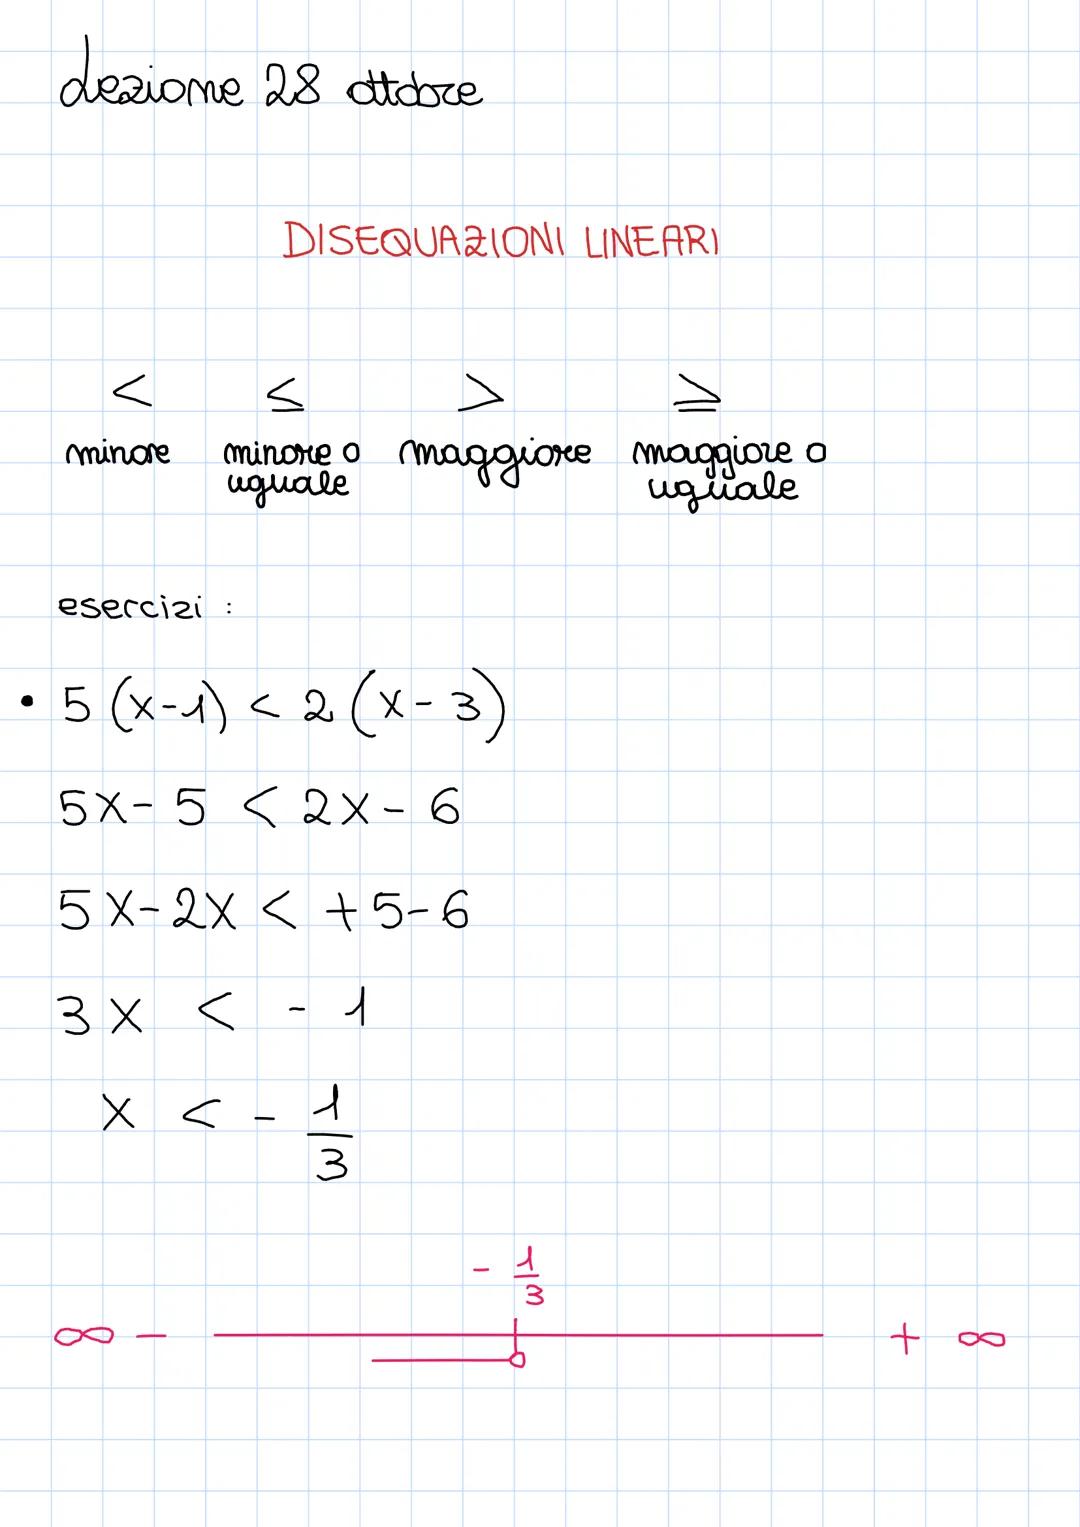 Lezione 28 ottobre
DISEQUAZIONI LINEARI
< ≤ > ≥
minore minore o uguale maggiore maggiore o uguale
esercizi :
• 5 (x-1) < 2 (x-3)
5x - 5 < 2x - 6
5x - 2x < +5-6
3x < -1
x < - 1/3
- 1/3
∞ - + ∞